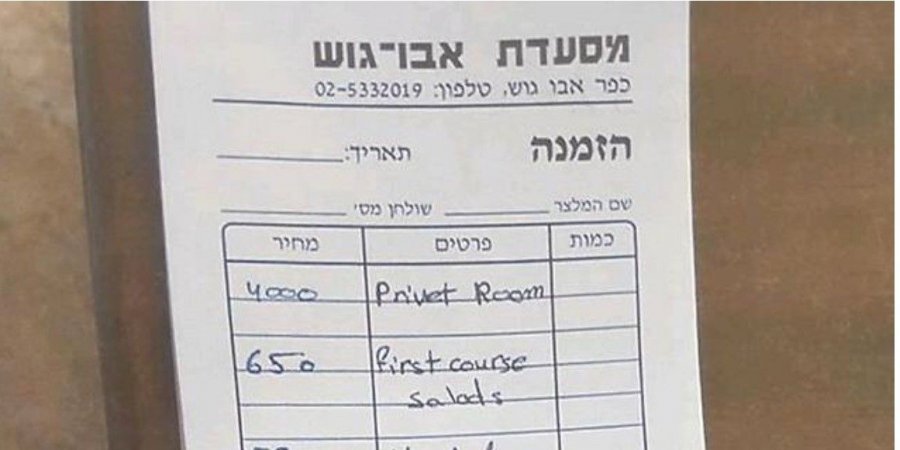 מסעדת אבו־גוש
כפר אבו גוש, טלפון: 02-5332019
הזמנה תאריך:
שם המלצר שולחן מס׳
כמות פרטים מחיר
Privet Room 4000
first course 650
salads